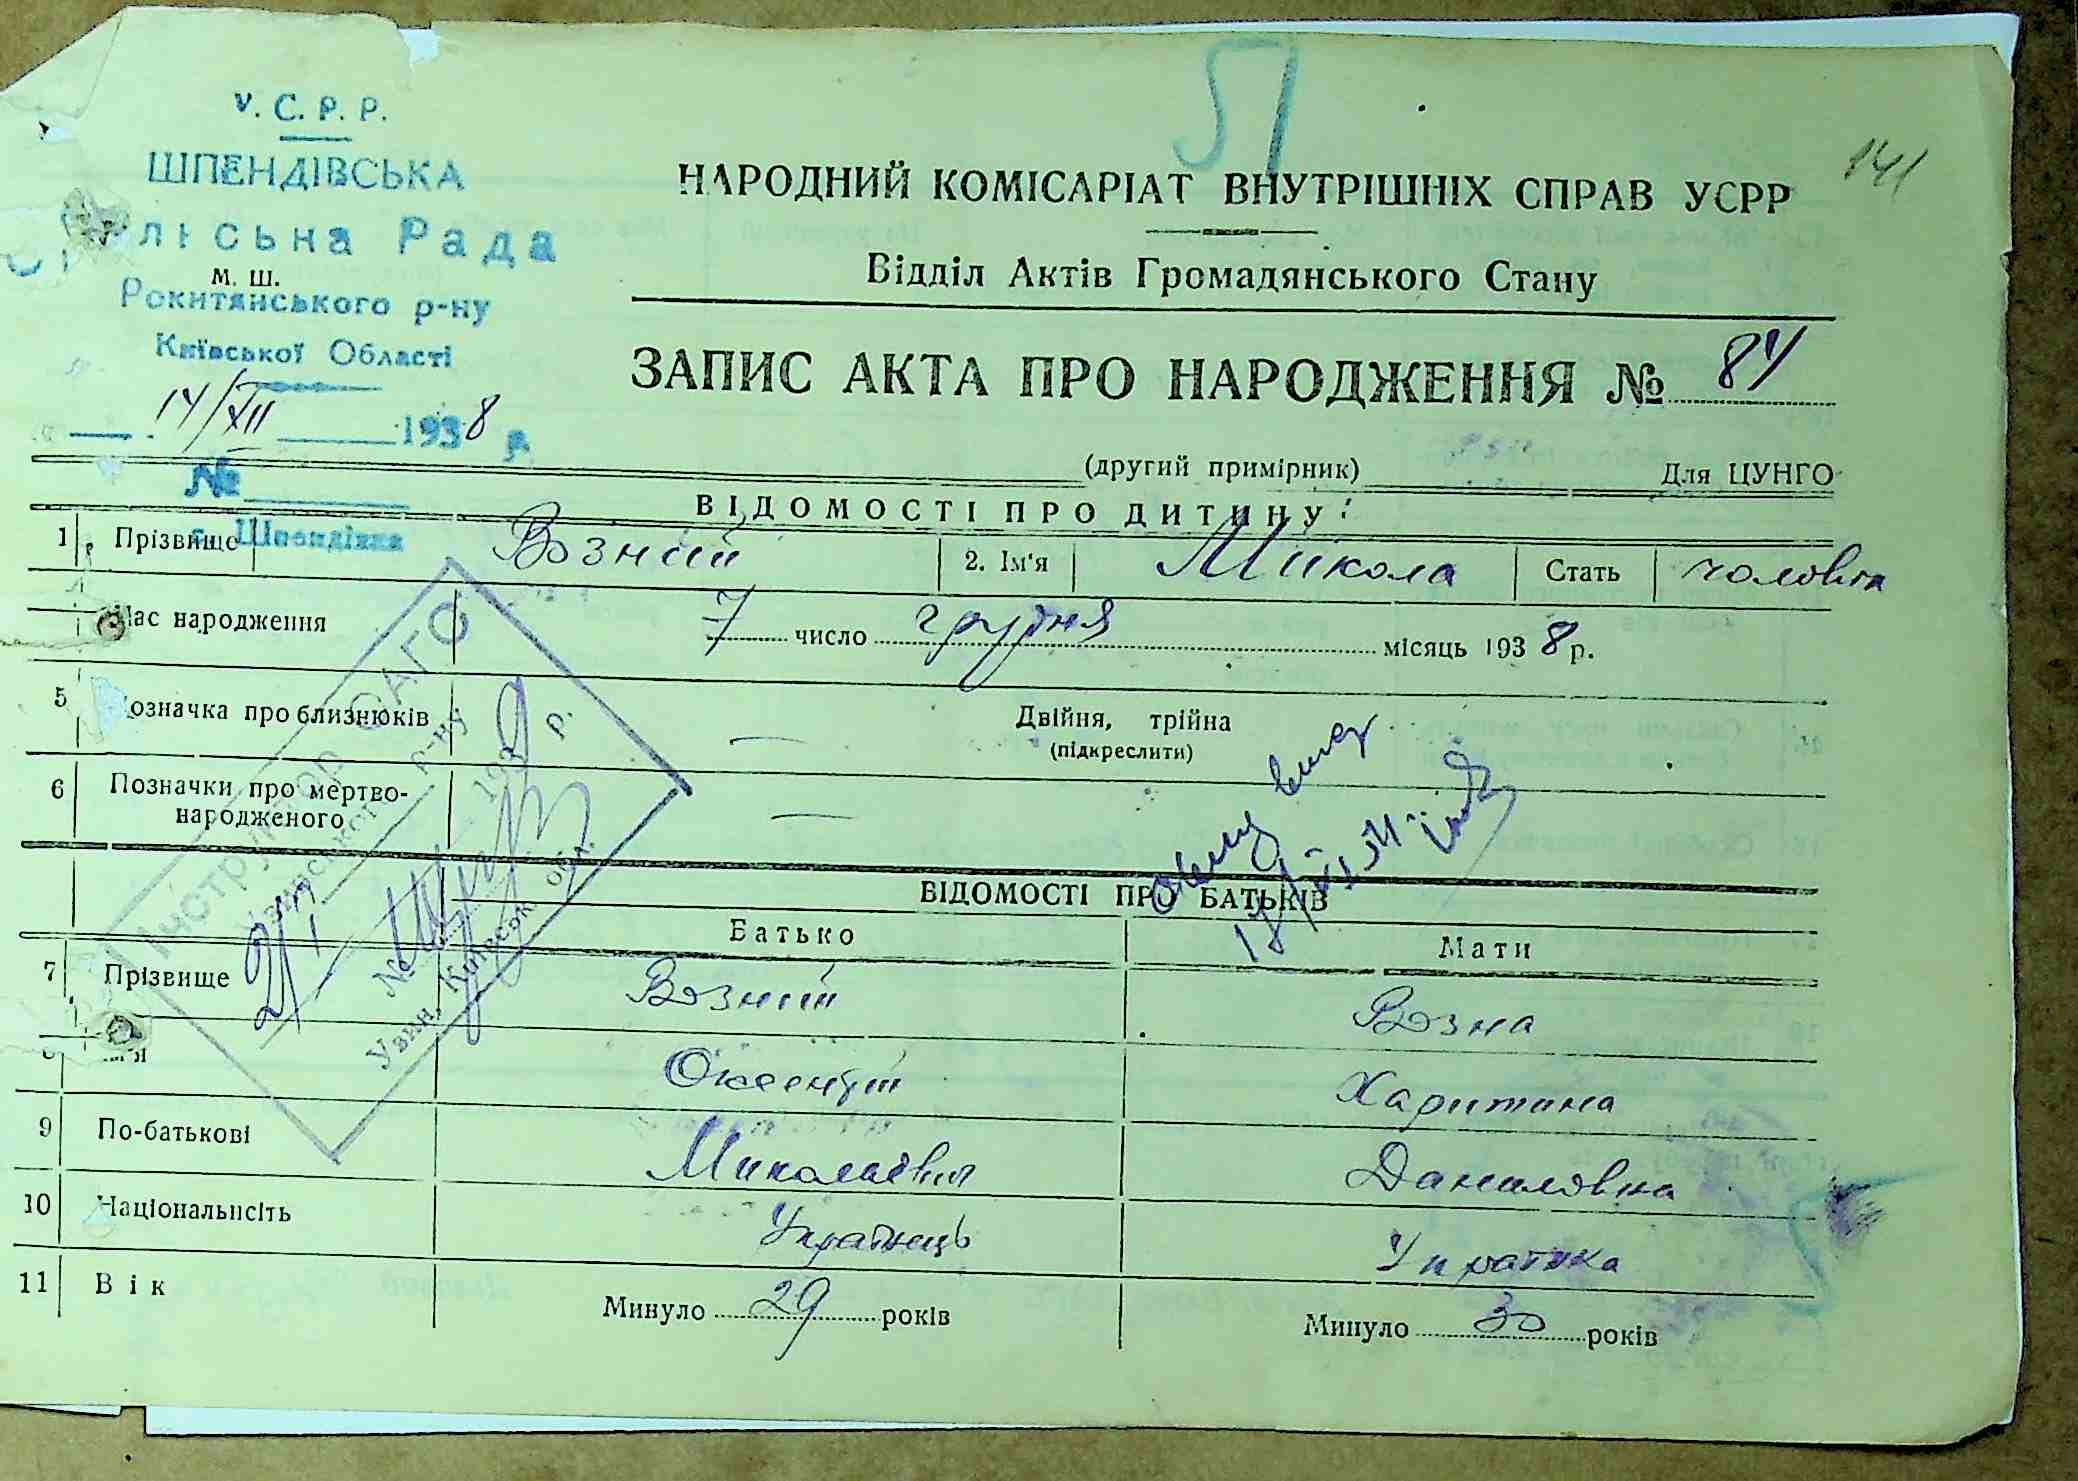 141
У. С. Р. Р.
ШПЕНДІВСЬКА
Сільська Рада
М. Ш.
Рокитянського р-ну
Київської Області
14/XII 1938 р.
№
с. Шпендівка
НАРОДНИЙ КОМІСАРІАТ ВНУТРІШНІХ СПРАВ УСРР
Відділ Актів Громадянського Стану
ЗАПИС АКТА ПРО НАРОДЖЕННЯ № 84
(другий примірник) Для ЦУНГО
ВІДОМОСТІ ПРО ДИТИНУ:
1 Прізвище Возний 2. Ім'я Микола Стать чоловіча
Час народження 7 число грудня місяць 1938 р.
5 Позначка про близнюків — Двійня, трійна
(підкреслити)
6 Позначки про мертво-
народженого —
Інструктор ОАГС
р-ну
193 р.
№
Київськ. обл.
ВІДОМОСТІ ПРО БАТЬКІВ
Батько Мати
7 Прізвище Возний Возна
8 Ім'я Оксентій Харитина
9 По-батькові Миколаєвич Даниловна
10 Національність Українець Українка
11 Вік Минуло 29 років Минуло 30 років